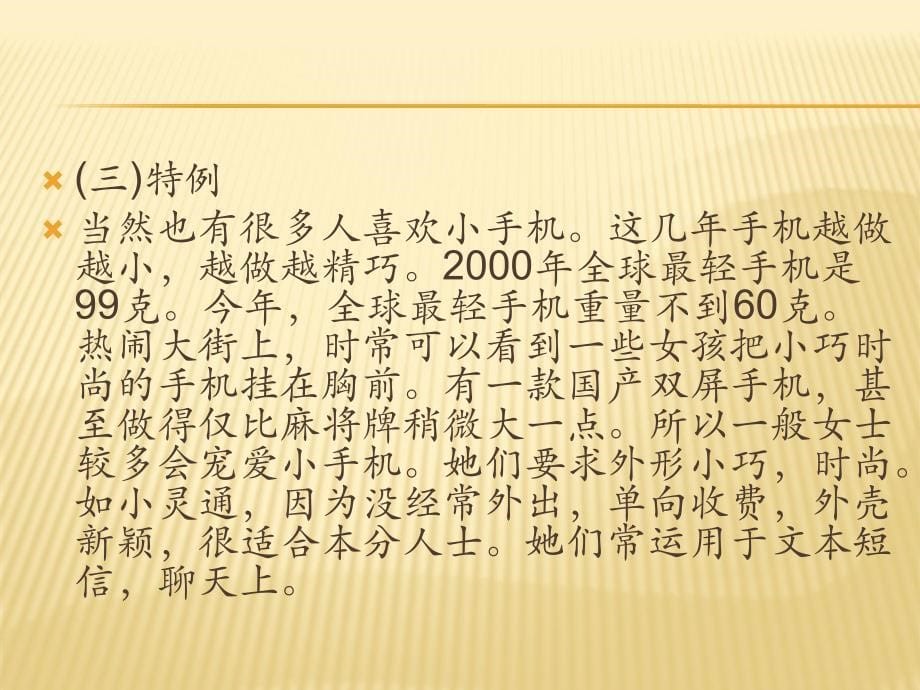 (三)特例
当然也有很多人喜欢小手机。这几年手机越做
越小，越做越精巧。2000年全球最轻手机是
99克。今年，全球最轻手机重量不到60克。
热闹大街上，时常可以看到一些女孩把小巧时
尚的手机挂在胸前。有一款国产双屏手机，甚
至做得仅比麻将牌稍微大一点。所以一般女士
较多会宠爱小手机。她们要求外形小巧，时尚。
如小灵通，因为没经常外出，单向收费，外壳
新颖，很适合本分人士。她们常运用于文本短
信，聊天上。